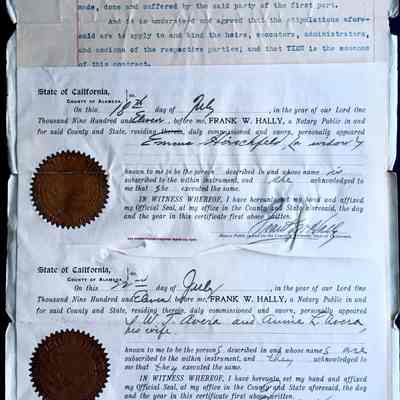 made, done and suffered by the said party of the first part.
And it is understood and agreed that the stipulations afore-
said are to apply to and bind the heirs, executors, administrators,
and assigns of the respective parties; and that TIME is the essence
of this contract.
State of California,
COUNTY OF ALAMEDA } ss.
On this 18th day of July, in the year of our Lord One
Thousand Nine Hundred and Eleven before me, FRANK W. HALLY, a Notary Public in and
for said County and State, residing therein, duly commissioned and sworn, personally appeared
Emma Hirschfeld (a widow)
known to me to be the person described in and whose name is
subscribed to the within instrument, and she acknowledged to
me that She executed the same.
IN WITNESS WHEREOF, I have hereunto set my hand and affixed
my Official Seal, at my office in the County and State aforesaid, the day
and the year in this certificate first above written.
Frank W. Hally
Notary Public in and for the County of Alameda, State of California.
State of California,
COUNTY OF ALAMEDA } ss.
On this 22nd day of July, in the year of our Lord One
Thousand Nine Hundred and Eleven before me, FRANK W. HALLY, a Notary Public in and
for said County and State, residing therein, duly commissioned and sworn, personally appeared
W. J. Avera and Annie L. Avera
his wife
known to me to be the persons described in and whose names are
subscribed to the within instrument, and they acknowledged to
me that they executed the same.
IN WITNESS WHEREOF, I have hereunto set my hand and affixed
my Official Seal, at my office in the County and State aforesaid, the day
and the year in this certificate first above written.